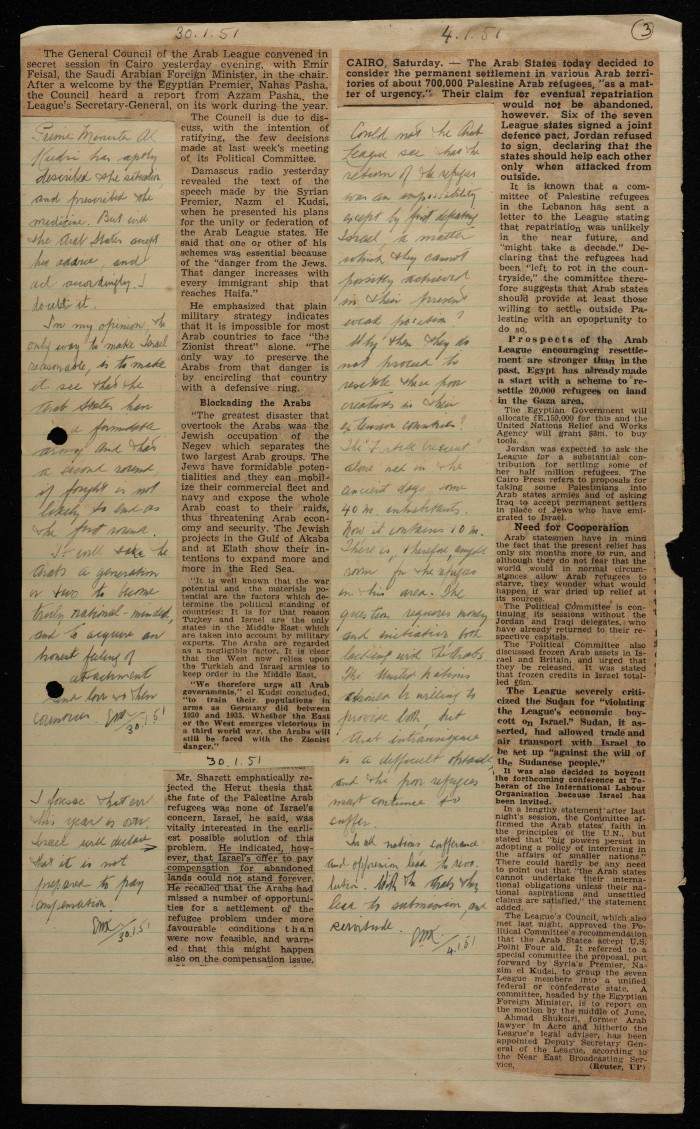 3
30.1.51
The General Council of the Arab League convened in
secret session in Cairo yesterday evening, with Emir
Feisal, the Saudi Arabian Foreign Minister, in the chair.
After a welcome by the Egyptian Premier, Nahas Pasha,
the Council heard a report from Azzam Pasha, the
League's Secretary-General, on its work during the year.
The Council is due to dis-
cuss, with the intention of
ratifying, the few decisions
made at last week's meeting
of its Political Committee.
Damascus radio yesterday
revealed the text of the
speech made by the Syrian
Premier, Nazm el Kudsi,
when he presented his plans
for the unity or federation of
the Arab League states. He
said that one or other of his
schemes was essential because
of the "danger from the Jews.
That danger increases with
every immigrant ship that
reaches Haifa."
He emphasized that plain
military strategy indicates
that it is impossible for most
Arab countries to face "the
Zionist threat" alone. "The
only way to preserve the
Arabs from that danger is
by encircling that country
with a defensive ring.
Blockading the Arabs
"The greatest disaster that
overtook the Arabs was the
Jewish occupation of the
Negev which separates the
two largest Arab groups. The
Jews have formidable poten-
tialities and they can mobil-
ize their commercial fleet and
navy and expose the whole
Arab coast to their raids,
thus threatening Arab econ-
omy and security. The Jewish
projects in the Gulf of Akaba
and at Elath show their in-
tentions to expand more and
more in the Red Sea.
"It is well known that the war
potential and the materials po-
tential are the factors which de-
termine the political standing of
countries: It is for that reason
Turkey and Israel are the only
states in the Middle East which
are taken into account by military
experts. The Arabs are regarded
as a negligible factor. It is clear
that the West now relies upon
the Turkish and Israel armies to
keep order in the Middle East.
"We therefore urge all Arab
governments," el Kudsi concluded,
"to train their populations in
arms as Germany did between
1930 and 1935. Whether the East
or the West emerges victorious in
a third world war, the Arabs will
still be faced with the Zionist
danger."
Prime Minister Al
Kudsi has aptly
described the situation
and prescribed the
medicine. But will
the Arab States accept
his advice, and
act accordingly. I
doubt it.
In my opinion, the
only way to make Israel
reasonable, is to make
it see that the
Arab States have
a formidable
army and that
a second round
if fought is not
likely to end as
the first round.
It will take the
Arabs a generation
or two to become
truly national-minded,
and to acquire an
honest feeling of
attachment
and love to their
countries.
30.1.51
30.1.51
Mr. Sharett emphatically re-
jected the Herut thesis that
the fate of the Palestine Arab
refugees was none of Israel's
concern. Israel, he said, was
vitally interested in the earli-
est possible solution of this
problem. He indicated, how-
ever, that Israel's offer to pay
compensation for abandoned
lands could not stand forever.
He recalled that the Arabs had
missed a number of opportuni-
ties for a settlement of the
refugee problem under more
favourable conditions than
were now feasible, and warn-
ed that this might happen
also on the compensation issue.
I forsee that ere
this year is over
Israel will declare
that it is not
prepared to pay
compensation
30.1.51
4.1.51
CAIRO, Saturday. — The Arab States today decided to
consider the permanent settlement in various Arab terri-
tories of about 700,000 Palestine Arab refugees, "as a mat-
ter of urgency." Their claim for eventual repatriation
would not be abandoned,
however. Six of the seven
League states signed a joint
defence pact, Jordan refused
to sign, declaring that the
states should help each other
only when attacked from
outside.
It is known that a com-
mittee of Palestine refugees
in the Lebanon has sent a
letter to the League stating
that repatriation was unlikely
in the near future, and
"might take a decade." De-
claring that the refugees had
been "left to rot in the coun-
tryside," the committee there-
fore suggests that Arab states
should provide at least those
willing to settle outside Pa-
lestine with an opportunity to
do so.
Prospects of the Arab
League encouraging resettle-
ment are stronger than in the
past. Egypt has already made
a start with a scheme to re-
settle 20,000 refugees on land
in the Gaza area.
The Egyptian Government will
allocate £E.150,000 for this and the
United Nations Relief and Works
Agency will grant $3m. to buy
tools.
Jordan was expected to ask the
League for a substantial con-
tribution for settling some of
her half million refugees. The
Cairo Press refers to proposals for
taking some Palestinians into
Arab states armies and of asking
Iraq to accept permanent settlers
in place of Jews who have emi-
grated to Israel.
Need for Cooperation
Arab statesmen have in mind
the fact that the present relief has
only six months more to run, and
although they do not fear that the
world would in normal circum-
stances allow Arab refugees to
starve, they wonder what would
happen if war dried up relief at
its sources.
The Political Committee is con-
tinuing its sessions without the
Jordan and Iraqi delegates, who
have already returned to their re-
spective capitals.
The Political Committee also
discussed frozen Arab assets in Is-
rael and Britain, and urged that
they be released. It was stated
that frozen credits in Israel total-
led £5m.
The League severely criti-
cized the Sudan for "violating
the League's economic boy-
cott on Israel." Sudan, it as-
serted, had allowed trade and
air transport with Israel to
be set up "against the will of
the Sudanese people."
It was also decided to boycott
the forthcoming conference at Te-
heran of the International Labour
Organization because Israel has
been invited.
In a lengthy statement after last
night's session, the Committee af-
firmed the Arab states' faith in
the principles of the U.N., but
stated that "big powers persist in
adopting a policy of interfering in
the affairs of smaller nations."
There could hardly be any need
to point out that "the Arab states
cannot undertake their interna-
tional obligations unless their na-
tional aspirations and unsettled
claims are satisfied," the statement
added.
The League's Council, which also
met last night, approved the Po-
litical Committee's recommendation
that the Arab States accept U.S.
Point Four aid. It referred to a
special committee the proposal, put
forward by Syria's Premier, Na-
zim el Kudsi, to group the seven
League members into a unified
federal or confederate state. A
committee, headed by the Egyptian
Foreign Minister, is to report on
the motion by the middle of June.
Ahmad Shukeiri, former Arab
lawyer in Acre and hitherto the
League's legal adviser, has been
appointed Deputy Secretary Gen-
eral of the League, according to
the Near East Broadcasting Ser-
vice. (Reuter, UP)
Could not the Arab
League see that the
return of the refugees
was an impossibility
except by first defeating
Israel, a matter
which they cannot
possibly achieve
in their present
weak position?
Why then they do
not proceed to
resettle these poor
creatures in their
extensive countries?
The "Fertile Crescent"
alone had in the
ancient days some
40 m. inhabitants
Now it contains 10 m.
There is, therefore ample
room for the refugees
in this area. The
question requires money
and initiative both
lacking with the Arabs.
The United Nations
should be willing to
provide both, but
Arab intransigence
is a difficult obstacle
and the poor refugees
must continue to
suffer.
In all nations sufferance
and oppression lead to revo-
lution. With the Arabs they
lead to submission, and
servitude.
4.1.51